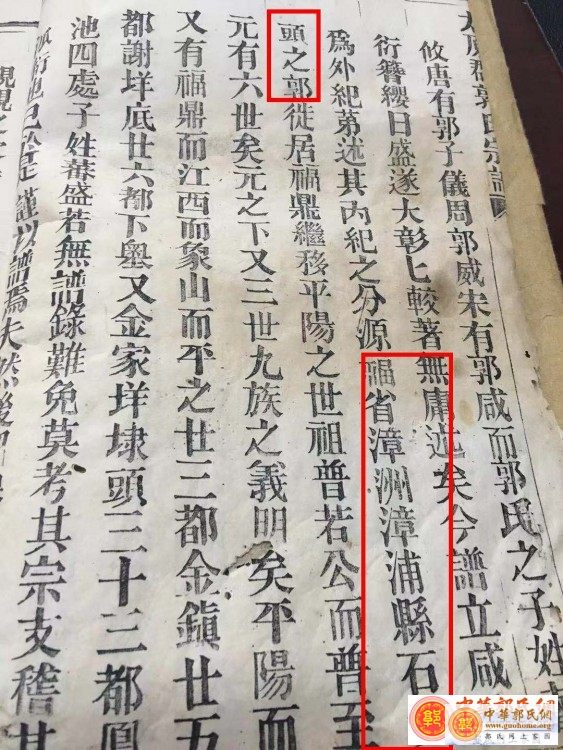 太原郡郭氏宗譜
攸唐有郭子儀周郭威宋有郭咸而郭氏之子姓
衍簪纓日盛遂大彰七較著無庸述矣今譜立咸
為外紀第述其內紀之分源福省漳洲漳浦縣石
頭之郭徒居福鼎繼移平陽之世祖普若公而普至
元有六世矣元之下又三世九族之義明矣平陽而
又有福鼎而江西而象山而平之廿三都金鎮廿五
都謝垟底廿六都下嶴又金家垟埭頭三十三都鳳
池四處子姓蕃盛若無譜錄難免莫考其宗支稽其
謹以譜焉夫然後
親之
中華郭氏網
www.guohome.org
郭氏網上家園